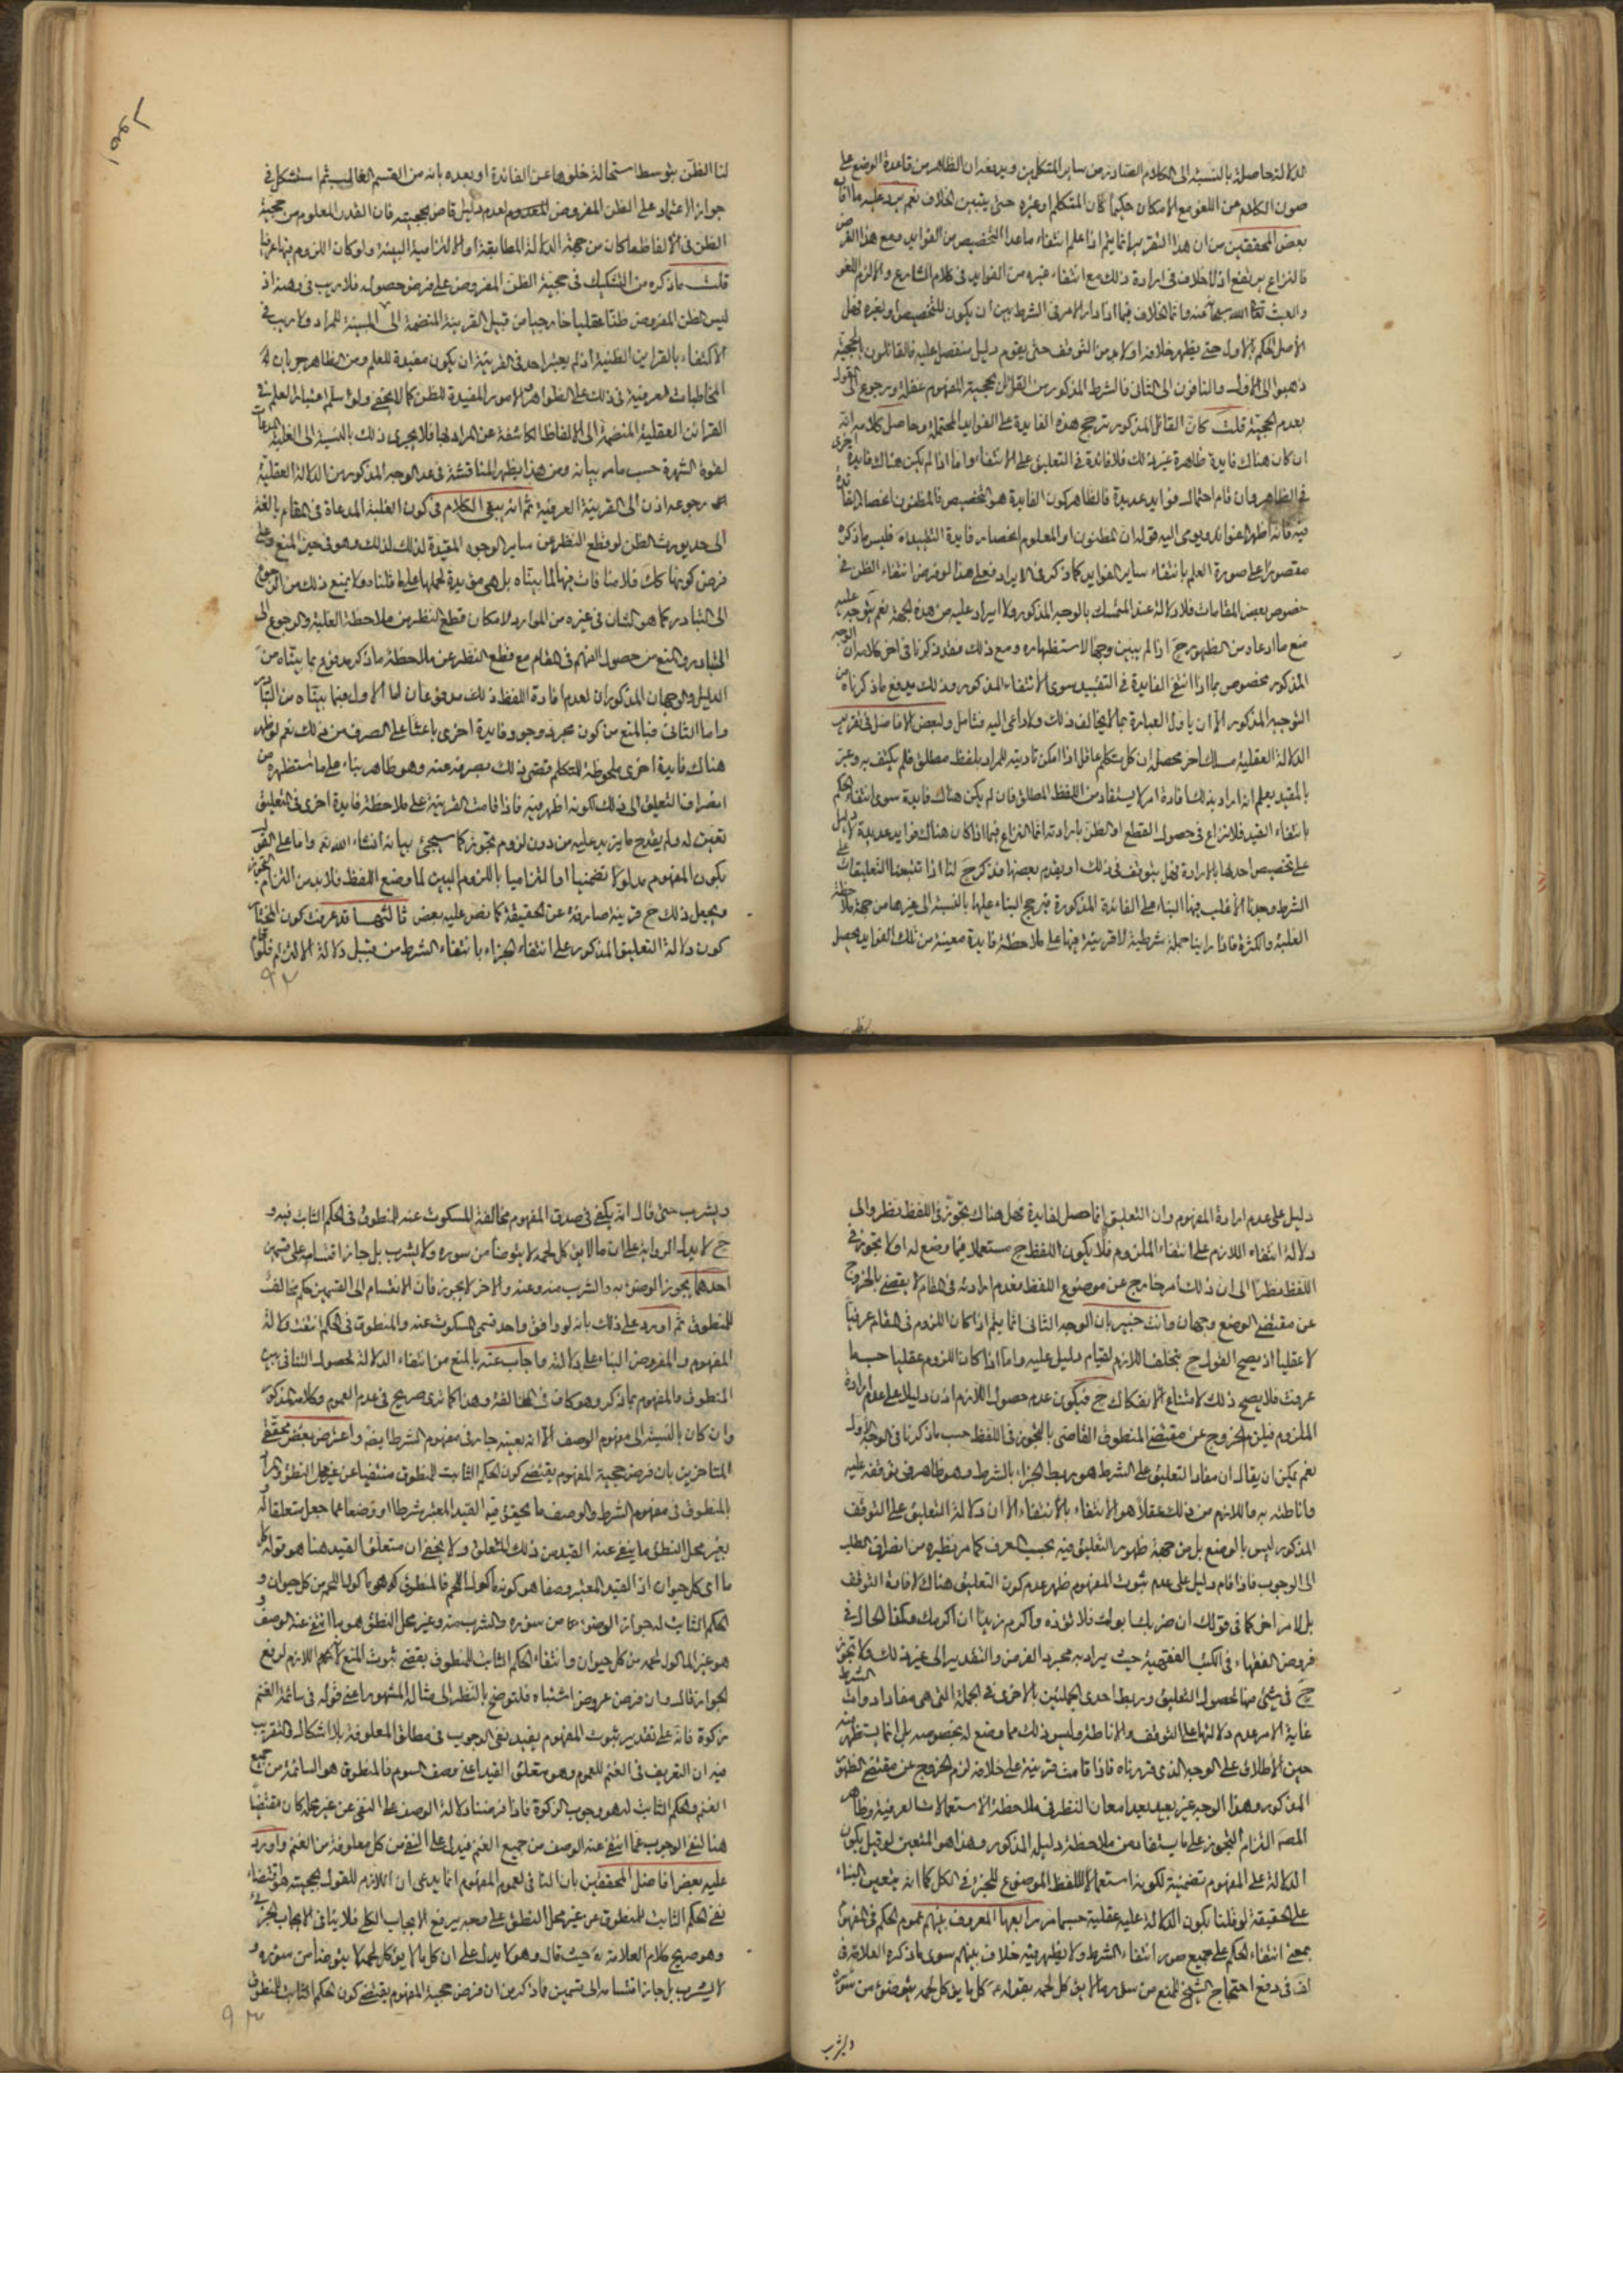 الدلالة حاصلة بالنسبة الى الكلام الصادر من ساير المتكلمين ويدفعه ان الظاهر من قاعدة الوضع على
صون الكلام عن اللغو مع الامكان حكيما كان المتكلم او غيره حتى يتبين الخلاف نعم يرد عليه ما افا
بعض المحققين من ان هذا التقرير انما يتم اذا علم انتفاء ما عدا التخصيص من الفوايد ومع هذا الفرض
فالنزاع يرتفع اذ لا خلاف في ارادة ذلك مع انتفاء غيره من الفوايد في كلام الشارع والا لزم اللغو
والعبث تعالى الله سبحانه عنه وانما الخلاف فيما اذا دار الامر في الشرط بين ان يكون للتخصيص او لغيره فهل
الاصل الحكم بالاول حتى يظهر خلافه او لا بد من التوقف حتى يقوم دليل منفصل عليه فالقائلون بالحجية
ذهبوا الى الاول والنافون الى الثاني فالشرط المذكور من القائل بحجية المفهوم غفلة ورجوع الى القول
بعدم الحجية قلت كان القائل المذكور يرجح هذه الفايدة على الفوايد المحتملة وحاصل كلامه انه
ان كان هناك فايدة ظاهرة غير ذلك فلا فائدة في التعليق على الانتفاء واما اذا لم يكن هناك فايدة اخرى
في الظاهر وان قام احتمال فوايد عديدة فالظاهر كون الفايدة هو التخصيص فالمظنون انحصار الفائدة
فيه فانه اظهر الفوايد ويومى اليه قوله ان المظنون او المعلوم انحصار فايدة التقييد اه فليس ما ذكره
مقصورا على صورة العلم بانتفاء ساير الفوايد كما ذكر في الايراد فعلى هذا لو فرض انتفاء الظن في
خصوص بعض المقامات فلا دلالة عند المتمسك بالوجه المذكور ولا ايراد عليه من هذه الجهة نعم يتوجه عليه
منع ما ادعاه من الظهور ح اذا لم يبين وجها لاستظهاره ومع ذلك فقد ذكرنا في اخر كلامه ان الوجه
المذكور مخصوص بما اذا انتفى الفايدة في التقييد سوى الانتفاء المذكور وذلك يدفع ما ذكرناه من
التوجيه المذكور الا ان ياول العبارة بما لا يخالف ذلك ولا داعى اليه فتامل ولبعض الافاضل في تقريب
الدلالة العقلية مسلك اخر محصله ان كل متكلم عاقل اذا امكن تادية المراد بلفظ مطلق فلم يكتف به وعبر
بالمقيد يعلم انه اراد بذلك افادة امر لا يستفاد من اللفظ المطلق فان لم يكن هناك فايدة سوى انتفاء الحكم
بانتفاء القيد فلا نزاع في حصول القطع او الظن بارادته انما النزاع فيما اذا كان هناك فوايد عديدة لا دليل
على تخصيص احدها بالارادة فهل يتوقف في ذلك او يقدم بعضها فذكر ح لنا اذا تتبعنا التعليقات على
الشرط وجدنا الاغلب فيها البناء على الفائدة المذكورة فيرجح البناء عليها بالنسبة الى غيرها من جهة ملاحظة
الغلبة والكثرة فاذا راينا جملة شرطية لا قرينة فيها على ملاحظة فايدة معينة من تلك الفوايد يحصل
لنا الظن بتوسط استحالة خلوها عن الفائدة او بعده بانه من القسم الغالب ثم استشكل في
جواز الاعتماد على الظن المفروض المعدوم لعدم دليل قاض بحجيته فان القدر المعلوم من حجية
الظن في الالفاظ ما كان من جهة الدلالة المطابقة او الالتزامية البينة ولو كان اللزوم فيها عرفيا
قلت ما ذكره من التشكيك في حجية الظن المفروض على فرض حصوله فلا ريب في وهنه اذ
ليس الظن المفروض ظنا عقليا خارجيا من قبيل القرينة المنضمة الى المبينة للمراد ولا ريب في
الاكتفاء بالقراين الظنية اذ لم يعتبر احد في القرينة ان يكون مفيدة للعلم ومن الظاهر جريان
المخاطبات العرفية في ذلك على الظواهر والامور المفيدة للظن كما لا يخفى ولو سلم اعتبار العلم في
القرائن العقلية المنضمة الى الالفاظ الكاشفة عن المراد بها فلا يجرى ذلك بالنسبة الى الغلبة المدعاة
لقوة الشهرة حسب ما مر بيانه ومن هذا يظهر المناقشة في عد الوجه المذكور من الدلالة العقلية
رجوعه اذن الى القرينة العرفية ثم انه يبقى الكلام في كون الغلبة المدعاة في المقام بالغة
الى حد يورث الظن لو قطع النظر عن ساير الوجوه المقيدة لذلك وهو في حيز المنع وعلى
فرض كونها كك فلا منافات فيها لما بيناه بل هى مؤيدة لحملها على ما قلناه ولا يمنع ذلك من الرجوع
الى التبادر كما هو الشان في غيره من الموارد لامكان قطع النظر من ملاحظة الغلبة والرجوع الى
التبادر والمنع من حصول الفهم في المقام مع قطع النظر عن ملاحظة ما ذكر مدفوع بما بيناه من
الدليل والوجهان المذكوران لعدم افادة اللفظ ذلك مدفوعان اما الاول فبما بيناه من التبادر
واما الثاني فبالمنع من كون مجرد وجود فايدة اخرى باعثا على الصرف من ذلك نعم لو ظهر
هناك فايدة اخرى ملحوظة للمتكلم قضى ذلك بصرفه عنه وهو ظاهر بناء على ما نستظهره من
انصراف التعليق الى ذلك لكونه اظهر فيه فاذا قامت القرينة على ملاحظة فايدة اخرى في التعليق
تعين له ولم يقدح ما يزيد عليه من دون لزوم تجوز كما سيجئ بيانه انشاء الله تع واما على القول
بكون المفهوم مدلولا تضمنيا او التزاميا باللزوم البين لما وضع اللفظ فلا بد من التزام التجوز
ويجعل ذلك ح قرينة صارفة عن الحقيقة كما نص عليه بعض ثالثها قد عرفت كون المختار
كون دلالة التعليق المذكور على انتفاء الجزاء بانتفاء الشرط من قبيل دلالة الالتزام فلو قام
٩٢
دليل على عدم ارادة المفهوم وان التعليق انما حصل لفايدة فهل هناك تجوز في اللفظ نظر والى
دلالة انتفاء اللازم على انتفاء الملزوم فلا يكون اللفظ ح مستعملا فيما وضع له او لا تجوز في
اللفظ نظرا الى ان ذلك امر خارج عن موضوع اللفظ فعدم ارادته في المقام لا يقضى بالخروج
عن مقتضى الوضع وجهان وانت خبير بان الوجه الثاني انما يتم اذا كان اللزوم في المقام عرفيا
لا عقليا اذ يصح القول ح بتخلف اللازم لقيام دليل عليه واما اذا كان اللزوم عقليا حسبما
عرفت فلا يصح ذلك لامتناع الانفكاك ح فيكون عدم حصول اللازم اذن دليلا على عدم ارادة
الملزوم فيلزم الخروج عن مقتضى المنطوق القاضى بالتجوز في اللفظ حسب ما ذكرنا في الوجه الاول
نعم يمكن ان يقال ان مفاد التعليق على الشرط هو ربط الجزاء بالشرط وهو ظاهر في توقفه عليه
واناطته به فاللازم من ذلك عقلا هو الانتفاء بالانتفاء الا ان دلالة التعليق على التوقف
المذكور ليس بالوضع بل من جهة ظهور التعليق فيه بحسب العرف كما مر نظيره من انصراف الطلب
الى الوجوب فاذا قام دليل على عدم ثبوت المفهوم ظهر عدم كون التعليق هناك لافادة التوقف
بل لامر اخر كما في قولك ان ضربك ابوك فلا تؤذه واكرم زيدا ان اكرمك وهكذا الحال في
فروض الفقهاء في الكتب الفقهية حيث يراد به مجرد الفرض والتقدير الى غير ذلك ولا تجوز
ح في شئ منها لحصول التعليق وربط احدى الجملتين بالاخرى في الجملة التى هى مفاد ادوات الشرط
غاية الامر عدم دلالتها على التوقف والاناطة وليس ذلك مما وضع له بخصوصه بل انما يستظهر منه
حين الاطلاق على الوجه الذى قررناه فاذا قامت قرينة على خلافه لزم الخروج عن مقتضى الظهور
المذكور وهذا الوجه غير بعيد بعد امعان النظر في ملاحظة الاستعمالات العرفية وظاهر
المصه التزام التجوز على ما يستفاد من ملاحظة دليله المذكور وهذا هو المتعين لو قيل بكون
الدلالة على المفهوم تضمنية لكونه استعمالا للفظ الموضوع للجزء في الكل كما انه يتعين البناء
على الحقيقة لو قلنا بكون الدلالة عليه عقلية حسبما مر رابعها المعروف بينهم عموم الحكم في المفهوم
بمعنى انتفاء الحكم على جميع صور انتفاء الشرط ولا يظهر فيه خلاف بينهم سوى ما ذكره العلامة في
لف في دفع احتجاج الشيخ للمنع من سؤر ما لا يؤكل لحمه بقوله ع كل ما يؤكل لحمه يتوضؤ من سؤره
ويشرب
ويشرب حتى قال انه يكفى في صدق المفهوم مخالفة المسكوت عنه للمنطوق في الحكم الثابت فيه و
ح لا يدل الرواية على ان ما لا يؤكل لحمه لا يتوضأ من سوره ولا يشرب بل جاز اقتسامه على قسمين
احدهما يجوز الوضوء به والشرب منه وعنه والاخر لا يجوز فان الانقسام الى القسمين حكم مخالف
للمنطوق ثم اورد على ذلك بانه لو وافق واحد قسمى المسكوت عنه والمنطوق في الحكم انتفت دلالة
المفهوم والمفروض البناء على دلالته واجاب عنه بالمنع من انتفاء الدلالة لحصول التنافى بين
المنطوق والمفهوم بما ذكر وهو كاف في المخالفة وهذا كما ترى صريح في عدم العموم وكلامه المذكور
وان كان بالنسبة الى مفهوم الوصف الا انه بعينه جار في مفهوم الشرط ايضا واعترض بعض محققى
المتاخرين بان فرض حجية المفهوم يقتضى كون الحكم الثابت للمنطوق منتفيا عن غير محل النطق والمراد
بالمنطوق في مفهوم الشرط والوصف ما تحقق فيه القيد المعتبر شرطا او وصفا مما جعل متعلقا له و
بغير محل النطق ما ينتفى عنه القيد من ذلك المتعلق ولا يخفى ان متعلق القيد هنا هو قوله كل
ما اى كل حيوان اذ القيد المعتبر وصفا هو كونه ماكول اللحم فالمنطوق هو ماكول اللحم من كل حيوان و
الحكم الثابت له جواز الوضوء من سؤره والشرب منه وغير محل النطق هو ما انتفى عنه الوصف و
هو غير الماكول لحمه من كل حيوان وانتفاء الحكم الثابت للمنطوق يقتضى ثبوت المنع اللازم لرفع
الجواز قال وان فرض عروض اشتباه فلتوضح بالنظر الى مثاله المشهور اعنى قوله في سائمة الغنم
زكوة فانه على تقدير ثبوت المفهوم يفيد نفى الوجوب في مطلق المعلوفة بلا اشكال والتقريب
فيه ان التعريف في الغنم للعموم وهو متعلق القيد اعنى وصف السوم فالمنطوق هو السائمة من جميع
الغنم والحكم الثابت له هو وجوب الزكوة فاذا فرضنا دلالة الوصف على النفى عن غير محله كان مقتضيا
هنا لنفى الوجوب عما انتفى عنه الوصف من جميع الغنم فيدل على النفى من كل معلوفة من الغنم واورد
عليه بعض افاضل المحققين بان النافى لعموم المفهوم انما يدعى ان اللازم للقول بحجيته هو اقتضاء
نفى الحكم الثابت للمنطوق عن غير محل النطق على وجه يرفع الايجاب الكلى فلا ينافى الايجاب الجزئى
وهو صريح كلام العلامة ره حيث قال وهو لا يدل على ان كل ما لا يؤكل لحمه لا يتوضأ من سؤره و
لا يشرب بل جاز اقتسامه الى قسمين فما ذكر من ان فرض حجية المفهوم يقتضى كون الحكم الثابت للمنطوق
٩٣